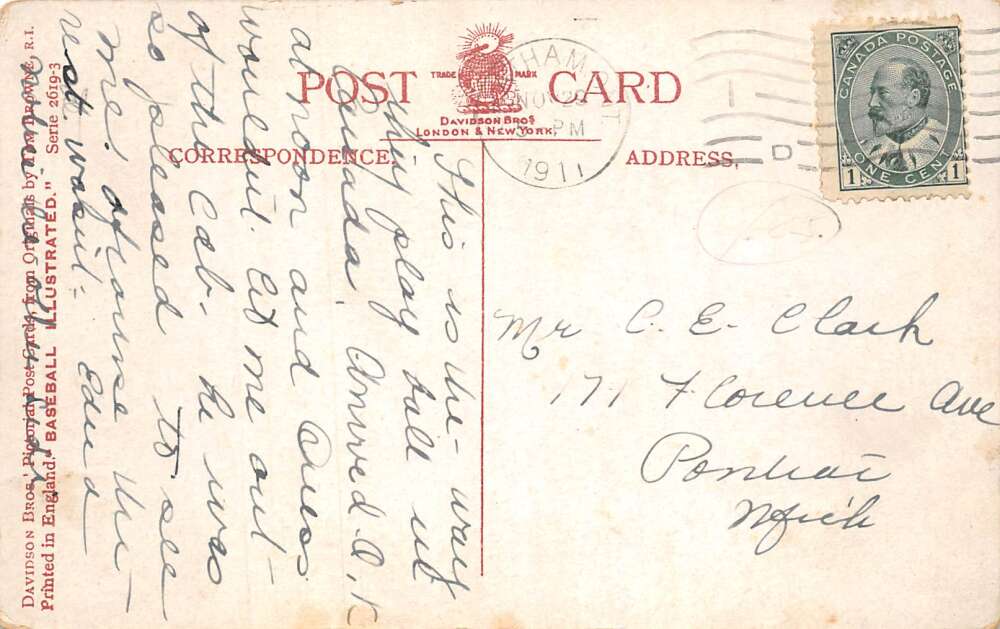 POST CARD
TRADE MARK
DAVIDSON BROS
LONDON & NEW YORK.
CORRESPONDENCE.
ADDRESS.
NOV 29
PM
1911
D
CANADA POSTAGE
1 ONE CENT 1
This is the way
they play ball in
Canada. Arrived O.K
at noon and
wouldnt let me out
of the Cab. he was
so pleased to see
me. Of course the
rest wasnt - Edn
Mr C. E. Clark
171 Florence Ave
Pontiac
Mich
DAVIDSON BROS.' Pictorial Post Cards, from Originals by TOM BROWNE, R.I.
Printed in England. "BASEBALL ILLUSTRATED." Serie 2619-3